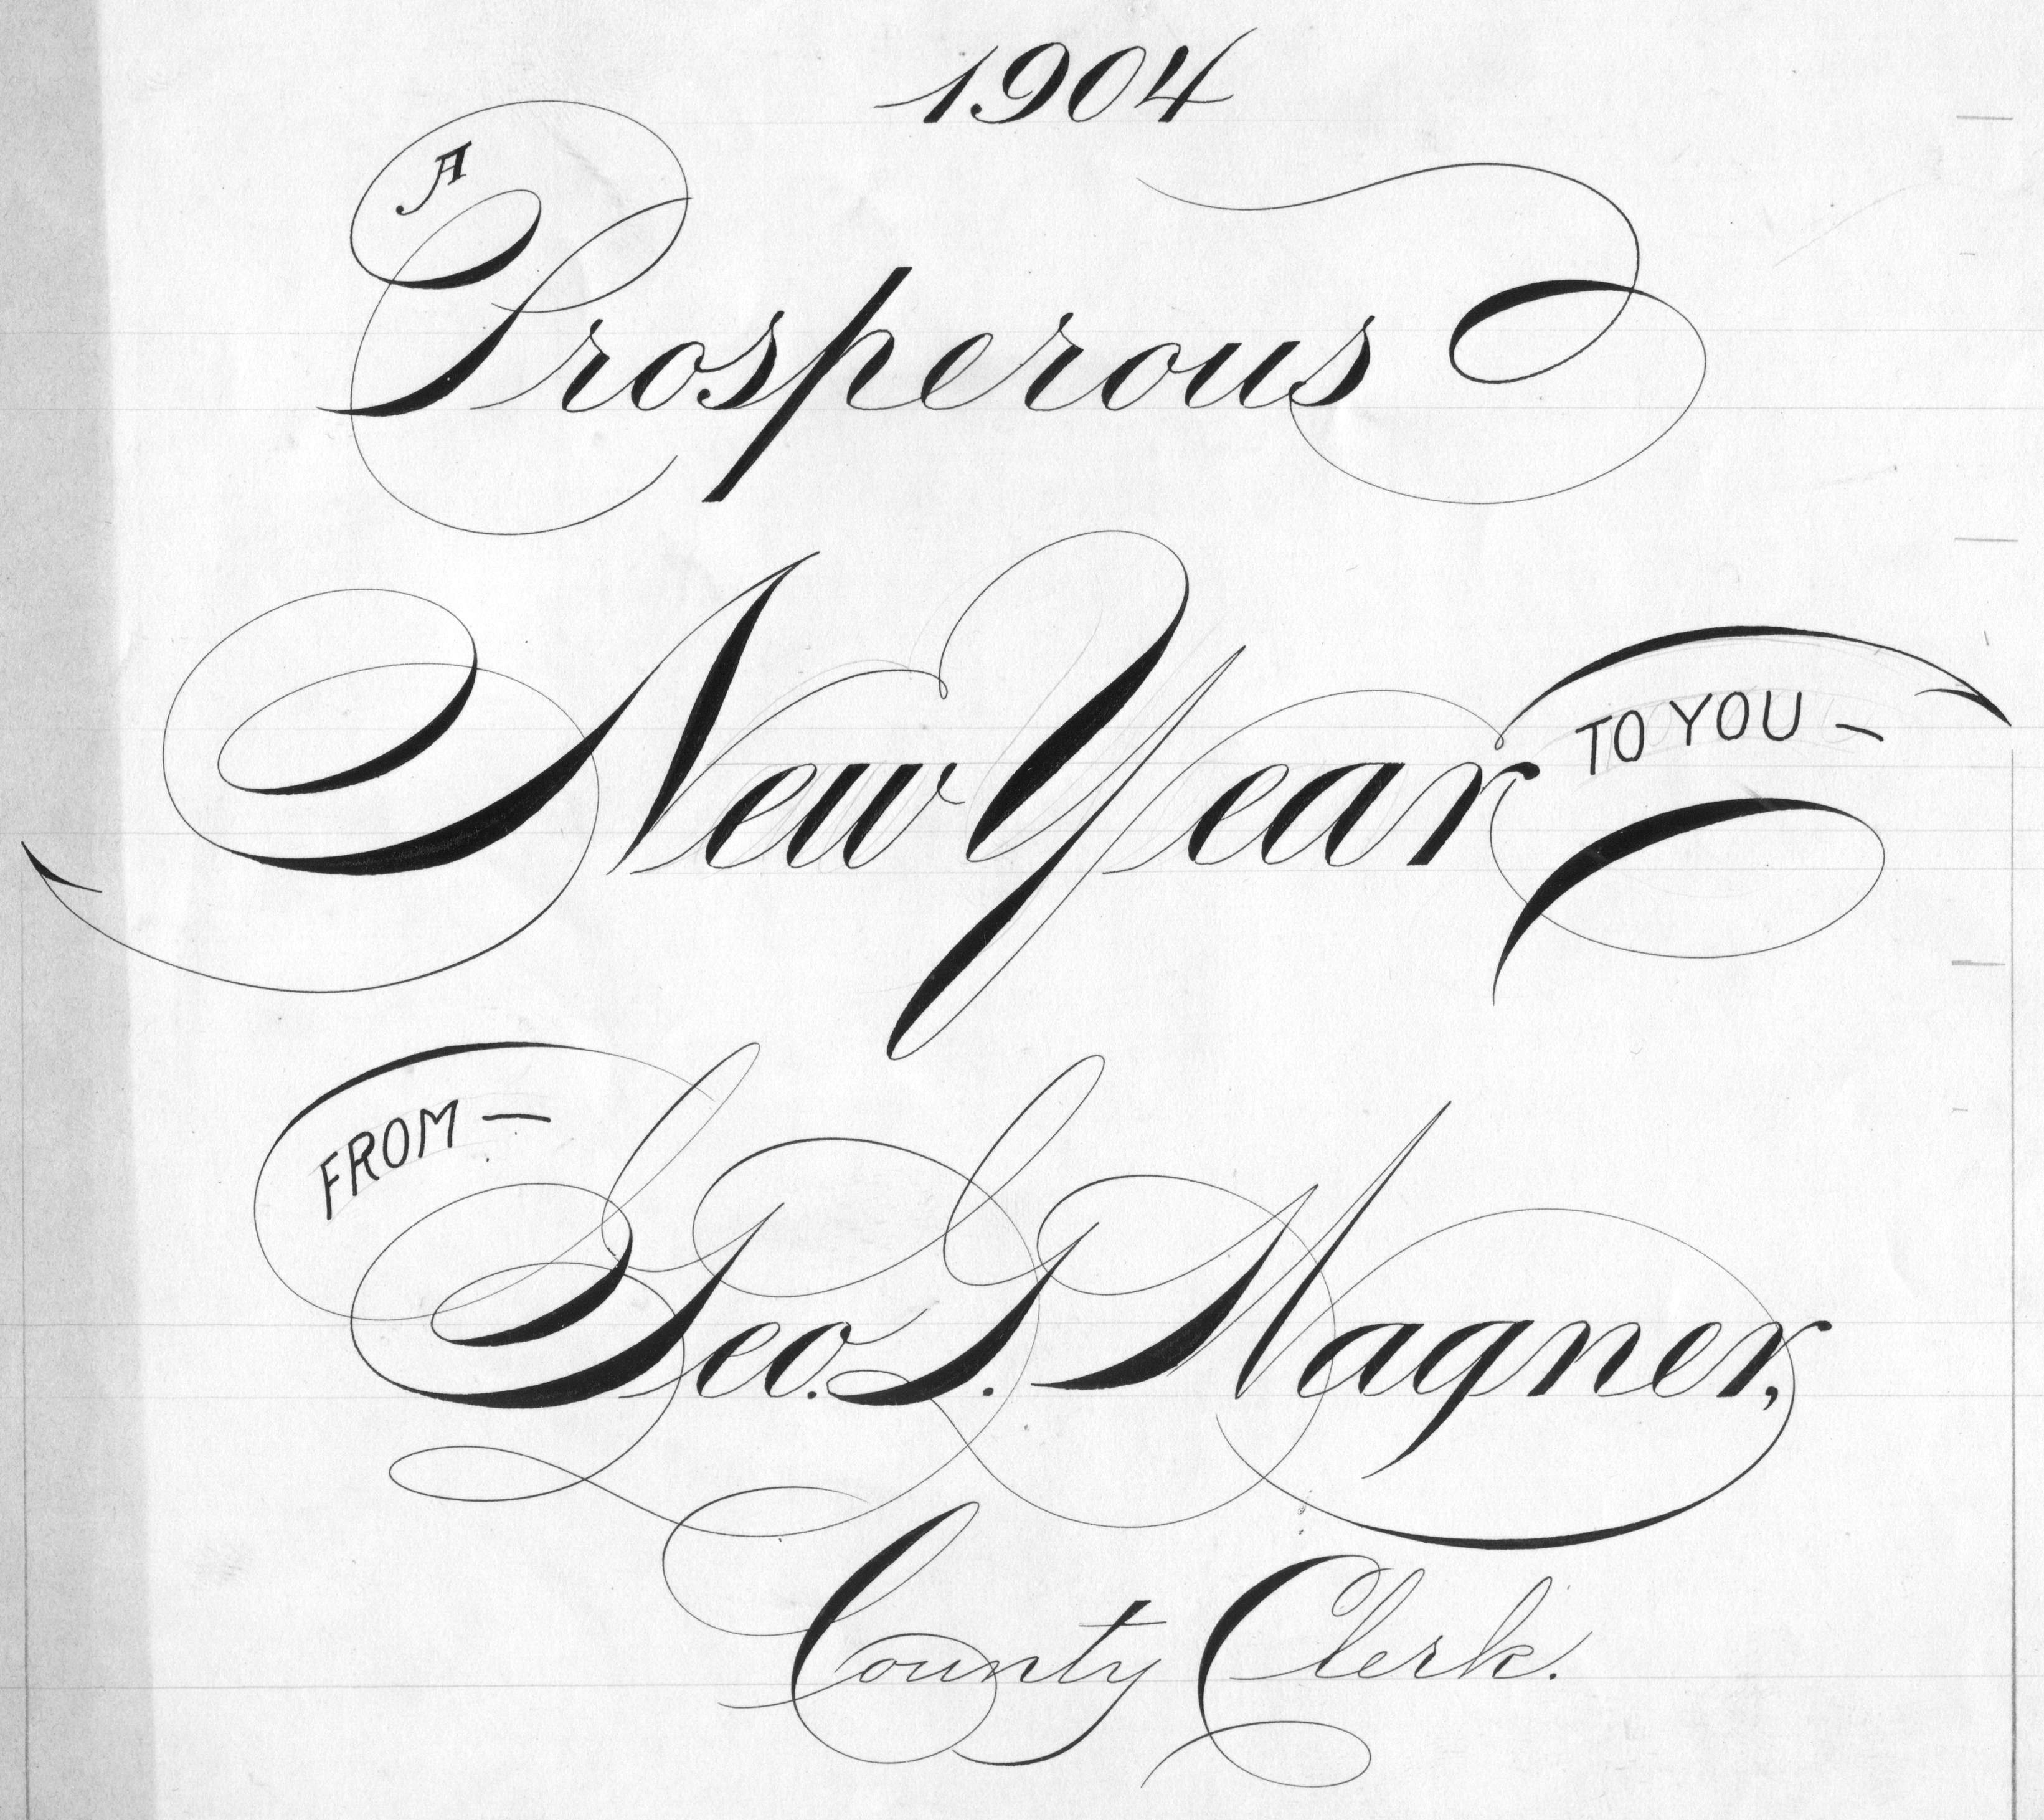 1904
A
Prosperous
New Year TO YOU —
FROM —
Geo. G. Magner,
County Clerk.